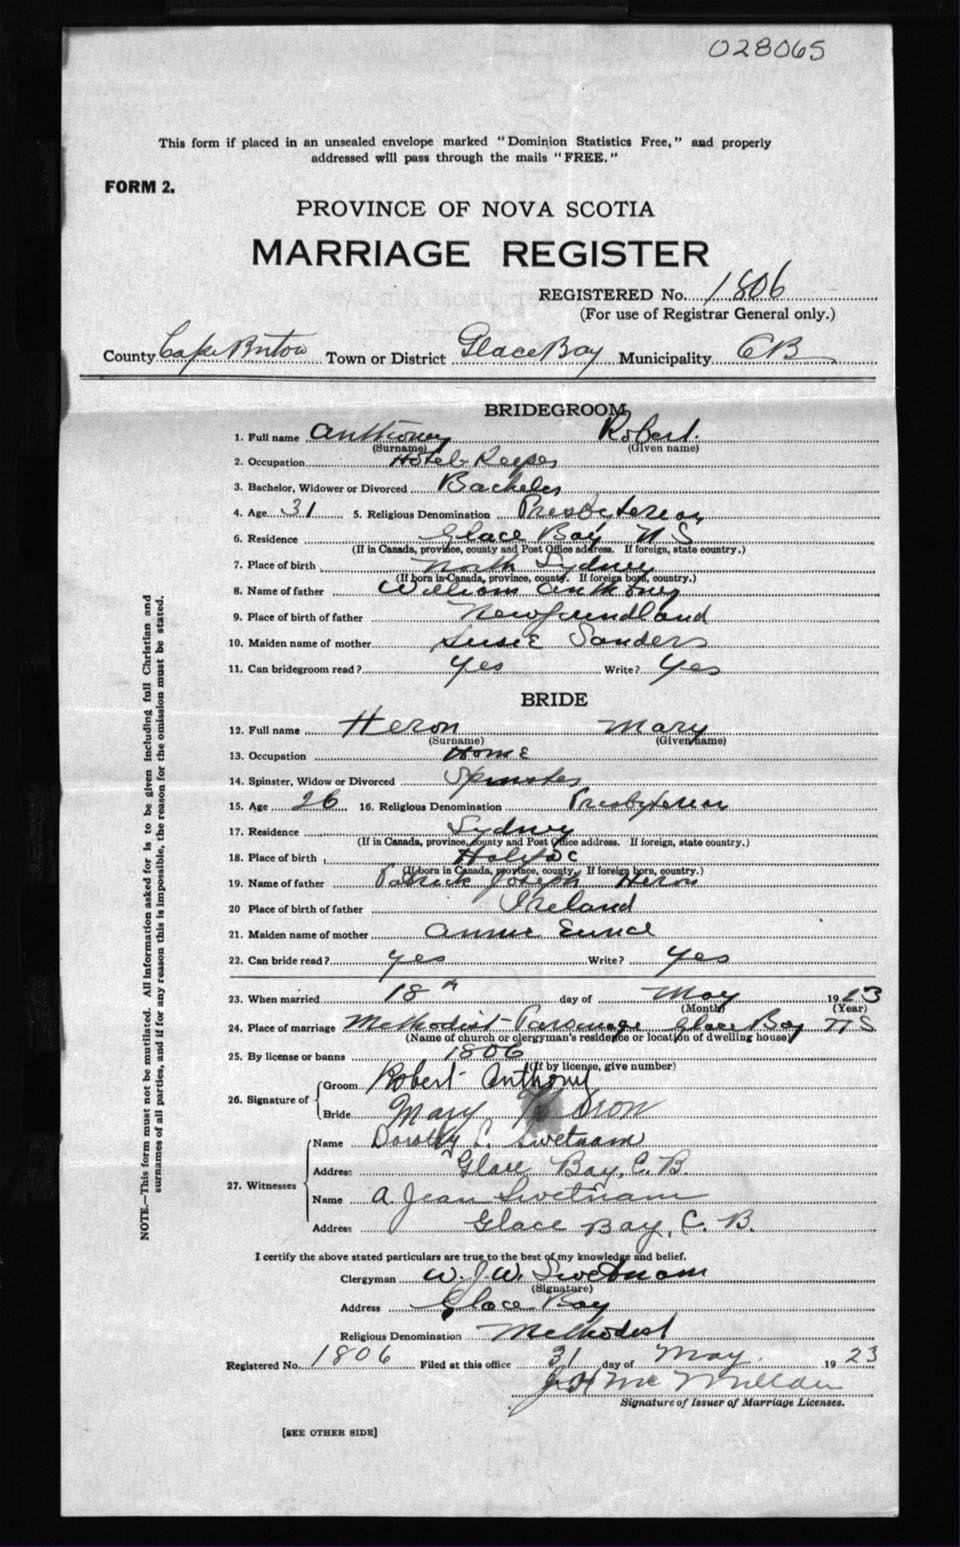 028065
This form if placed in an unsealed envelope marked "Dominion Statistics Free," and properly
addressed will pass through the mails "FREE."
FORM 2.
PROVINCE OF NOVA SCOTIA
MARRIAGE REGISTER
REGISTERED No. 1806
(For use of Registrar General only.)
County Cape Breton Town or District Glace Bay Municipality CB
BRIDEGROOM
1. Full name Anthoney Robert.
(Surname) (Given name)
2. Occupation Hotel Keeper
3. Bachelor, Widower or Divorced Bachelor
4. Age 31 5. Religious Denomination Presbyterian
6. Residence Glace Bay NS
(If in Canada, province, county and Post Office address. If foreign, state country.)
7. Place of birth North Sydney
(If born in Canada, province, county. If foreign born, country.)
8. Name of father William Anthoney
9. Place of birth of father Newfoundland
10. Maiden name of mother Susie Sanders
11. Can bridegroom read? Yes Write? Yes
BRIDE
12. Full name Heron Mary
(Surname) (Given name)
13. Occupation Home
14. Spinster, Widow or Divorced Spinster
15. Age 26 16. Religious Denomination Presbyterian
17. Residence Sydney
(If in Canada, province, county and Post Office address. If foreign, state country.)
18. Place of birth Halifac
(If born in Canada, province, county. If foreign born, country.)
19. Name of father Patrick Joseph Heron
20 Place of birth of father Ireland
21. Maiden name of mother Annie
22. Can bride read? yes Write? yes
23. When married 18th day of May 1923
(Month) (Year)
24. Place of marriage Methodist Parsonage Glace Bay NS
(Name of church or clergyman's residence or location of dwelling house)
25. By license or banns 1806
(If by license, give number)
26. Signature of
Groom Robert Anthony
Bride Mary
27. Witnesses
Name Dorothy E. Swetnam
Address Glace Bay, C. B.
Name A. Jean Swetnam
Address Glace Bay, C. B.
I certify the above stated particulars are true to the best of my knowledge and belief.
Clergyman W. J. W. Swetnam
(Signature)
Address Glace Bay
Religious Denomination Methodist
Registered No. 1806 Filed at this office 31 day of May. 1923
McMillan
Signature of Issuer of Marriage Licenses.
[SEE OTHER SIDE]
NOTE.—This form must not be mutilated. All information asked for is to be given including full Christian and
surnames of all parties, and if for any reason this is impossible, the reason for the omission must be stated.